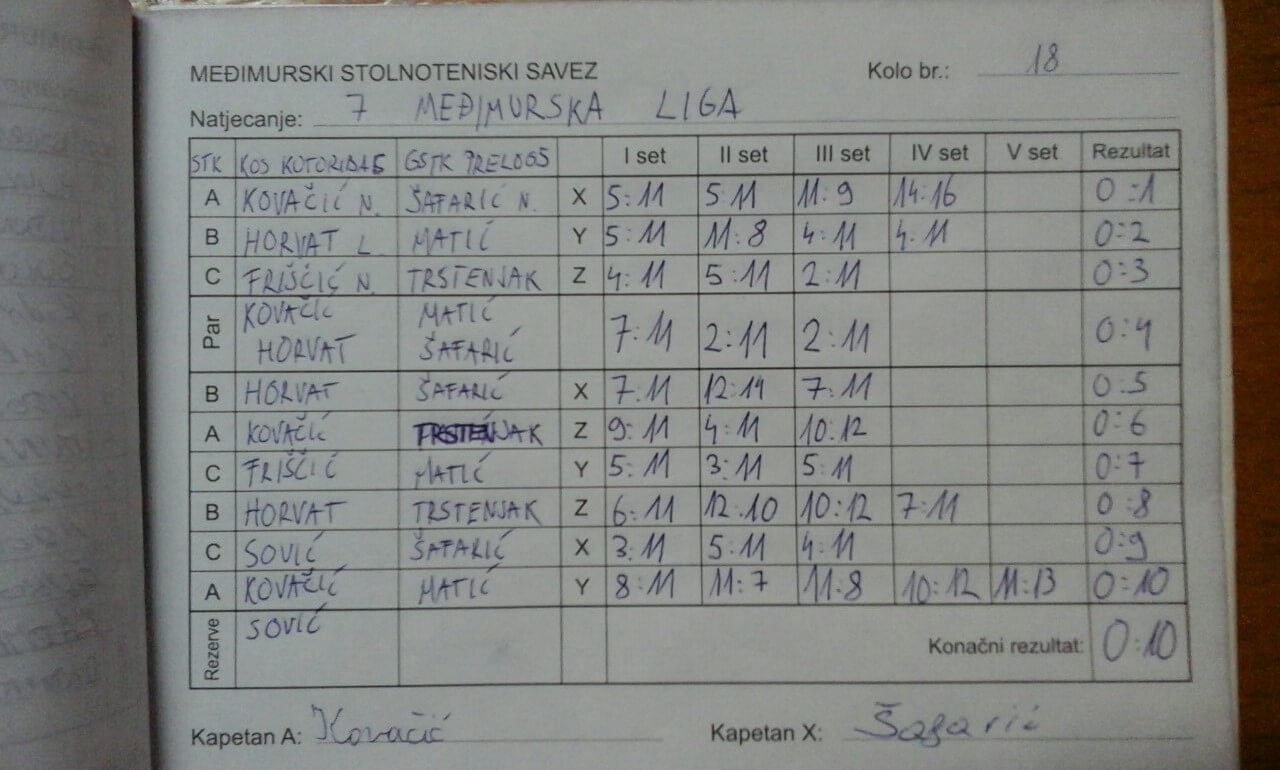 MEĐIMURSKI STOLNOTENISKI SAVEZ Kolo br.: 18
Natjecanje: 7 MEĐIMURSKA LIGA
STK KOS KOTORIBA5 GSTK PRELOG5 I set II set III set IV set V set Rezultat
A KOVAČIĆ N. ŠAFARIĆ N. X 5:11 5:11 11:9 14:16 0:1
B HORVAT L MATIĆ Y 5:11 11:8 4:11 4:11 0:2
C FRIŠČIĆ N. TRSTENJAK Z 4:11 5:11 2:11 0:3
Par KOVAČIĆ MATIĆ 7:11 2:11 2:11 0:4
HORVAT ŠAFARIĆ
B HORVAT ŠAFARIĆ X 7:11 12:14 7:11 0:5
A KOVAČIĆ TRSTENJAK Z 9:11 4:11 10:12 0:6
C FRIŠČIĆ MATIĆ Y 5:11 3:11 5:11 0:7
B HORVAT TRSTENJAK Z 6:11 12:10 10:12 7:11 0:8
C SOVIĆ ŠAFARIĆ X 3:11 5:11 4:11 0:9
A KOVAČIĆ MATIĆ Y 8:11 11:7 11:8 10:12 11:13 0:10
Rezerve SOVIĆ Konačni rezultat: 0:10
Kapetan A: Kovačić Kapetan X: Šafarić